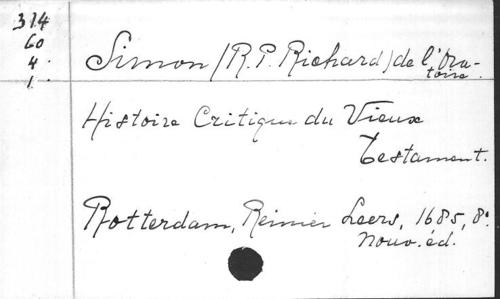 314
60
4.
1.
Simon (R.P. Richard) de l'Ora-
toire.
Histoire Critique du Vieux
Testament.
Rotterdam, Reinier Leers, 1685, 8º.
nouv. éd.